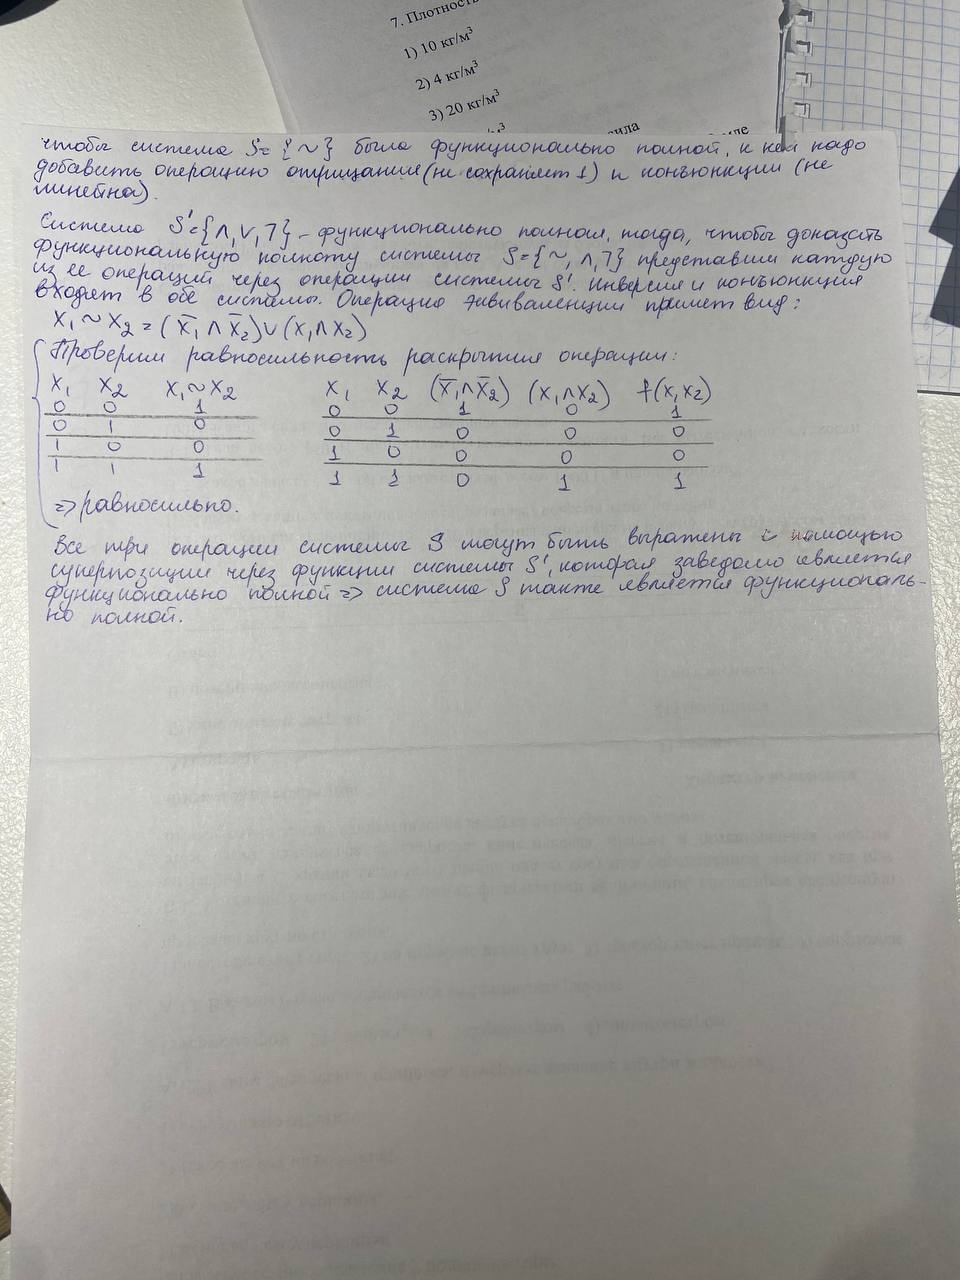 7. Плотность
1) 10 кг/м³
2) 4 кг/м³
3) 20 кг/м³
сила
чтобы система S={~} была функционально полной, к ней надо
добавить операцию отрицание (не сохраняет 1) и конъюнкции (не
линейна).
Система S'={∧,∨,⅂} - функционально полная, тогда, чтобы доказать
функциональную полноту системы S={~,∧,⅂} представим каждую
из ее операций через операции системы S'. Инверсия и конъюнкция
входят в обе системы. Операция эквиваленции примет вид:
X₁~X₂=(X̄₁∧X̄₂)∨(X₁∧X₂)
Проверим равносильность раскрытия операции:
X₁ X₂ X₁~X₂ X₁ X₂ (X̄₁∧X̄₂) (X₁∧X₂) f(X₁X₂)
0 0 1 0 0 1 0 1
0 1 0 0 1 0 0 0
1 0 0 1 0 0 0 0
1 1 1 1 1 0 1 1
=> равносильно.
Все три операции системы S могут быть выражены с помощью
суперпозиции через функции системы S', которая заведомо является
функционально полной => система S также является функциональ-
но полной.